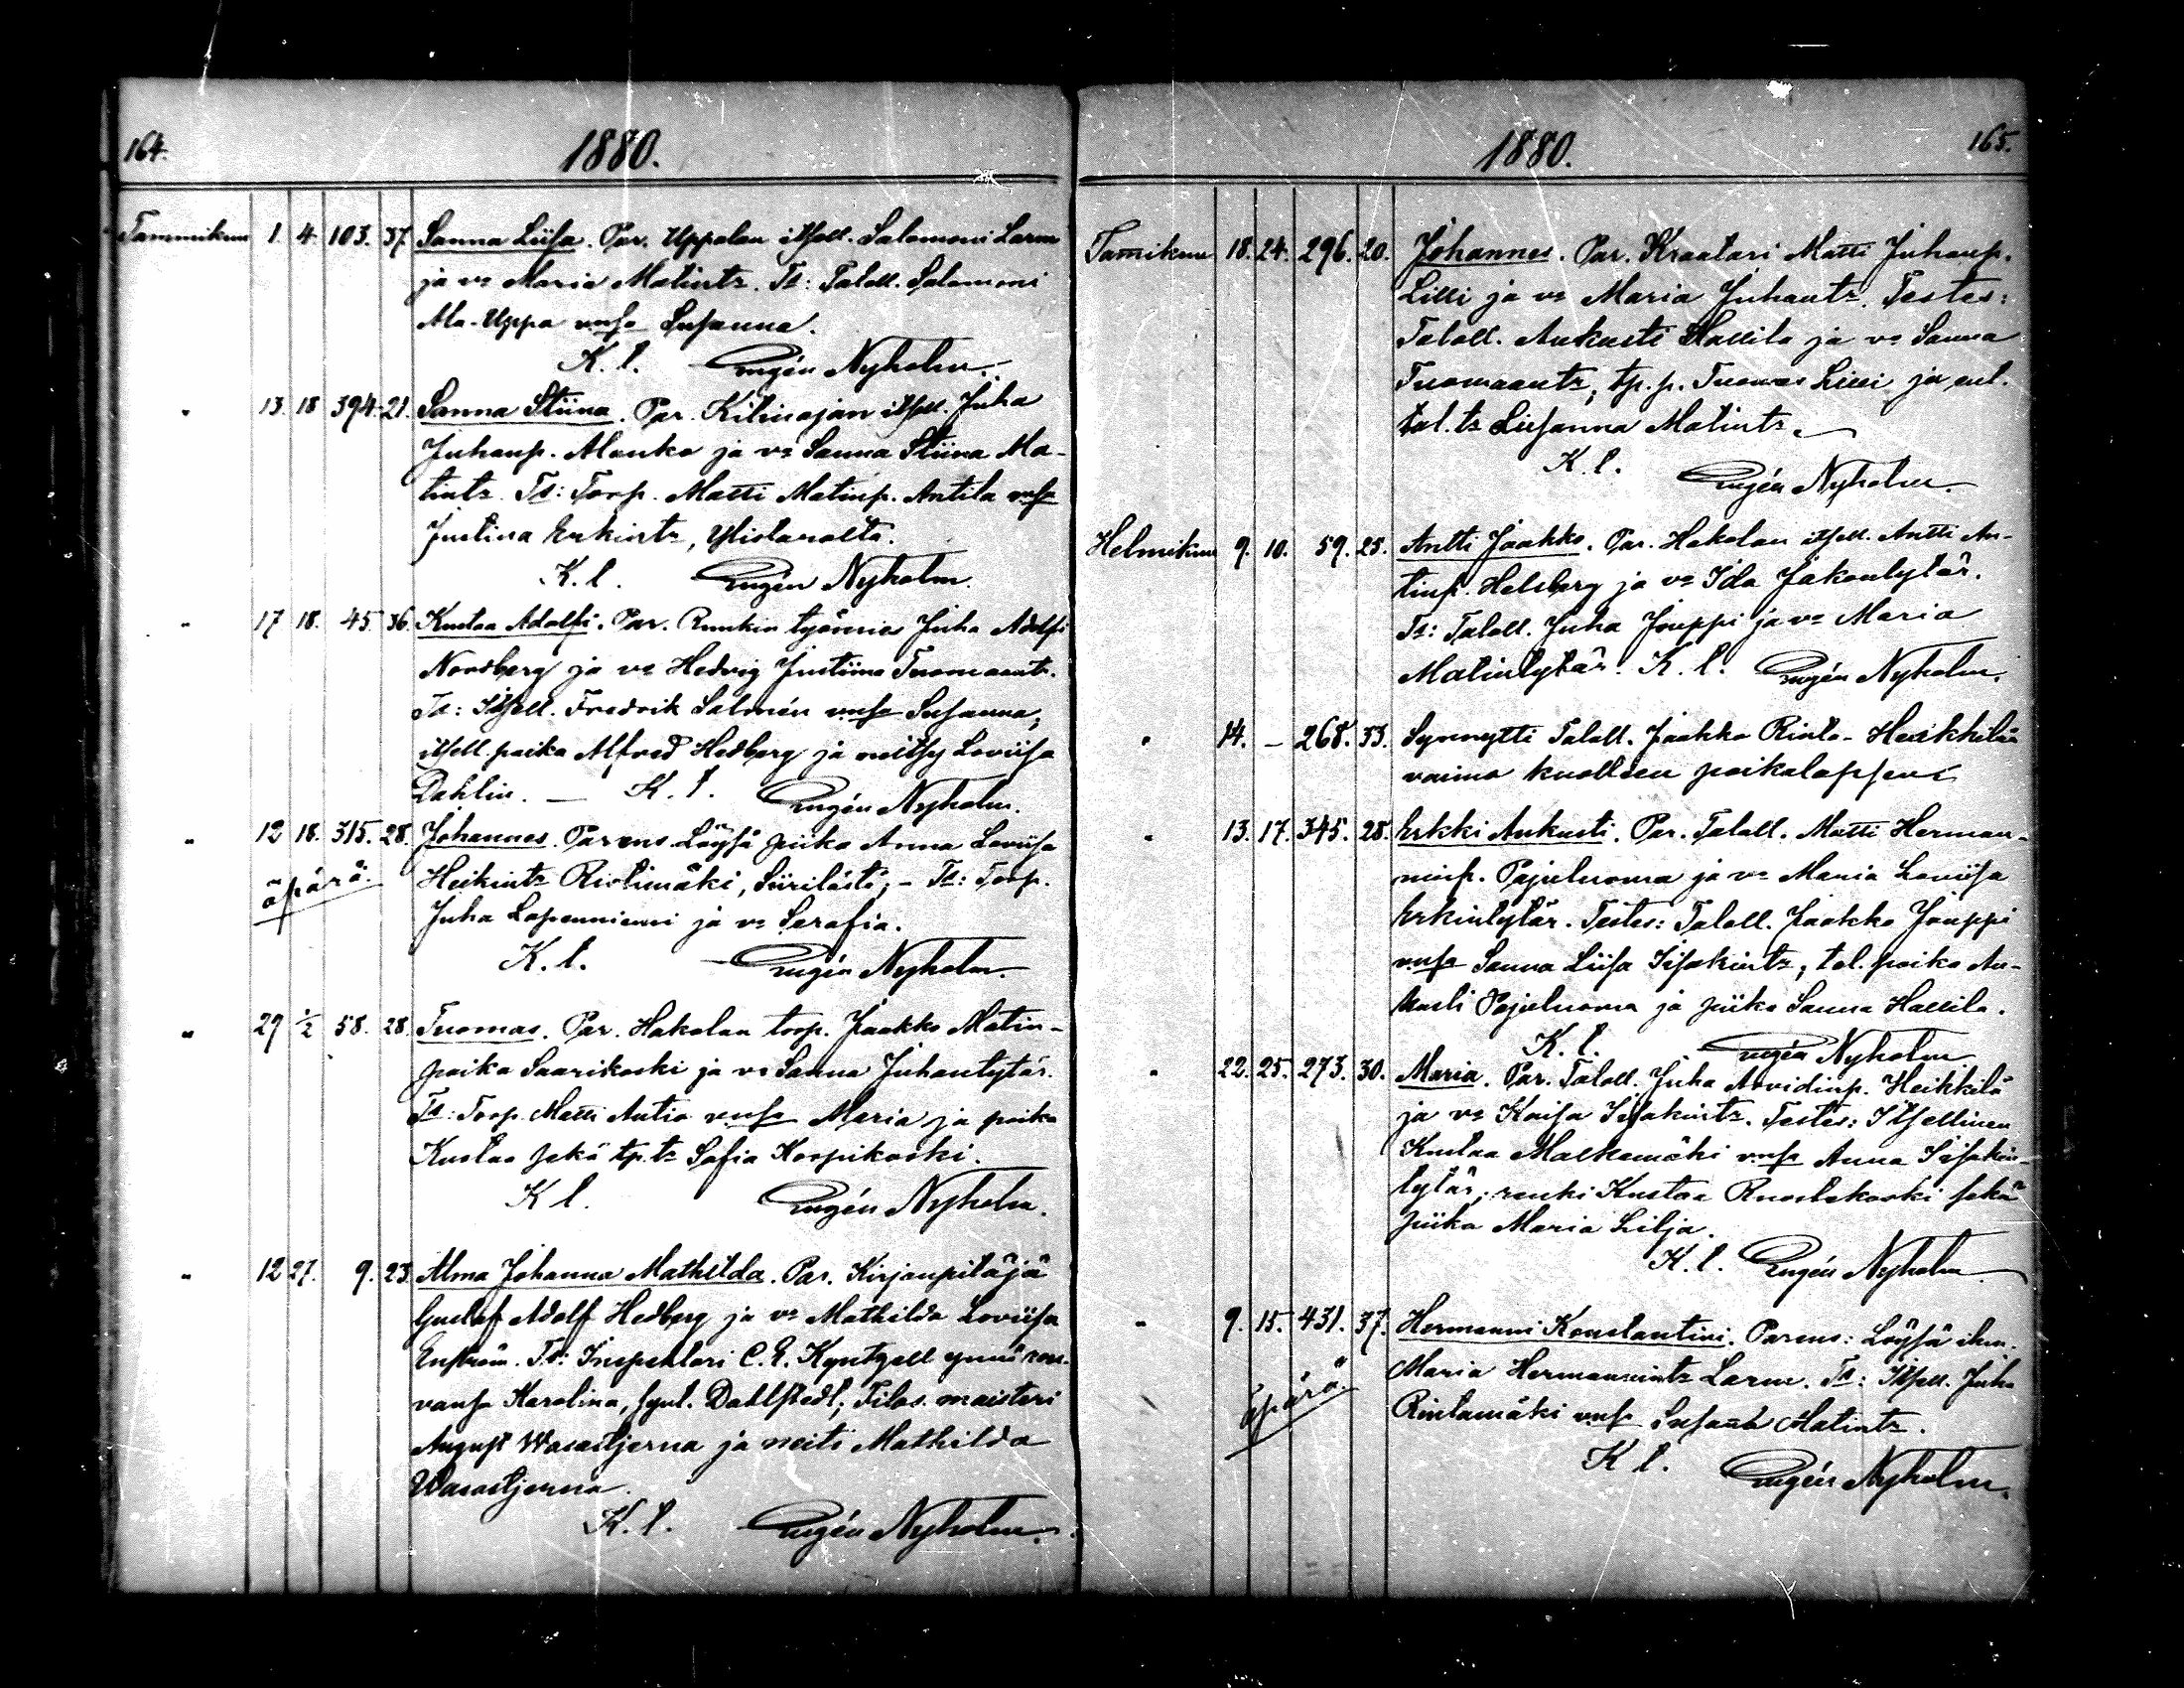 164.
1880.
Tammikuu 1. 4. 103. 37. Sanna Liisa. Par. Uppalan itsell. Salomoni Larm
ja vo Maria Matintr. Ts: Taloll. Salomoni
Ala-Uppa vnsa Susanna.
K. l. Eugén Nyholm.
" 13. 18 394. 21. Sanna Stiina. Par. Kihniajan itsell. Juha
Juhanp. Alanko ja vo Sanna Stiina Ma-
tintr. Ts: Torp. Matti Matinp. Antila vnsa
Justina Erkintr, Ylistarolta.
K. l. Eugén Nyholm.
" 17 18. 45. 36. Kustaa Adolfi. Par. Ruukin työmies Juha Adolfi
Nordberg ja vo Hedvig Justiina Tuomaantr.
Ts: Itsell. Fredrik Salmén vnsa Susanna;
itsell. poika Alfred Hedberg ja neitsy Loviisa
Dahlin. — K. l. Eugén Nyholm.
" 12 18. 315. 28. Johannes. Parens Löysä piika Anna Loviisa
äpärä. Heikintr Rintimäki, Siirilästä; - Ts: Torp.
Juha Lapenniemi ja vo Serafia.
K. l. Eugén Nyholm.
" 29 1/2 58. 28. Tuomas. Par. Hakolan torp. Jaakko Matin-
poika Saarikoski ja vo Sanna Juhantytär.
Ts: Torp. Matti Antio vnsa Maria ja poika
Kustaa sekä tp. tr Sofia Korpikoski.
K l. Eugén Nyholm.
" 12 27. 9. 23. Alma Johanna Mathilda. Par. Kirjanpitäjä
Gustaf Adolf Hedberg ja vo Mathilda Loviisa
Enström. Ts: Inspehtori C. E. Kyntzell ynnä rou-
vansa Karolina, synt. Dahlstedt; Filos. maisteri
August Wasastjerna ja neiti Mathilda
Wasastjerna.
K. l. Eugén Nyholm.
1880.
165.
Tamikuu 18. 24. 296. 20. Johannes. Par. Kraatari Matti Juhanp.
Lilli ja vo Maria Juhantr. Testes:
Taloll. Aukusti Hallila ja vo Sanna
Tuomaantr; tp. p. Tuomas Lilli ja ent.
tal. tr Liisanna Matintr.
K. l. Eugén Nyholm.
Helmikuu 9. 10. 59. 25. Antti Jaakko. Par. Hakolan itsell. Antti An-
tinp. Helsberg ja vo Ida Jakontytär.
Ts: Taloll. Juha Jouppi ja vo Maria
Matintytär. K. l. Eugén Nyholm.
" 14. – 268. 33. Synnytti Taloll. Jaakko Rinta-Heikkilän
vaimo kuolleen poikalapsen
" 13. 17. 345. 28. Erkki Aukusti. Par. Taloll. Matti Herman-
ninp. Pajuluoma ja vo Maria Loviisa
Erkintytär. Testes: Taloll. Jaakko Jouppi
vnsa Sanna Liisa Iisakintr; tal. poika Au-
kusti Pajuluoma ja piika Sanna Hallila.
K. l. Eugén Nyholm
" 22. 25. 273. 30. Maria. Par. Taloll. Juha Arvidinp. Heikkilä
ja vo Kaisa Iisakintr. Testes: Itsellinen
Kustaa Malkamäki vnsa Anna Iisakin-
tytär; renki Kustaa Ruostekoski sekä
piika Maria Lilja.
K. l. Eugén Nyholm
" 9. 15. 431. 37. Hermanni Konstantini. Parens: Löysä ihm.
äpärä Maria Hermannintr Larm. Ts: Itsell. Juha
Rintamäki vnsa Susanna Matintr.
K l. Eugén Nyholm.